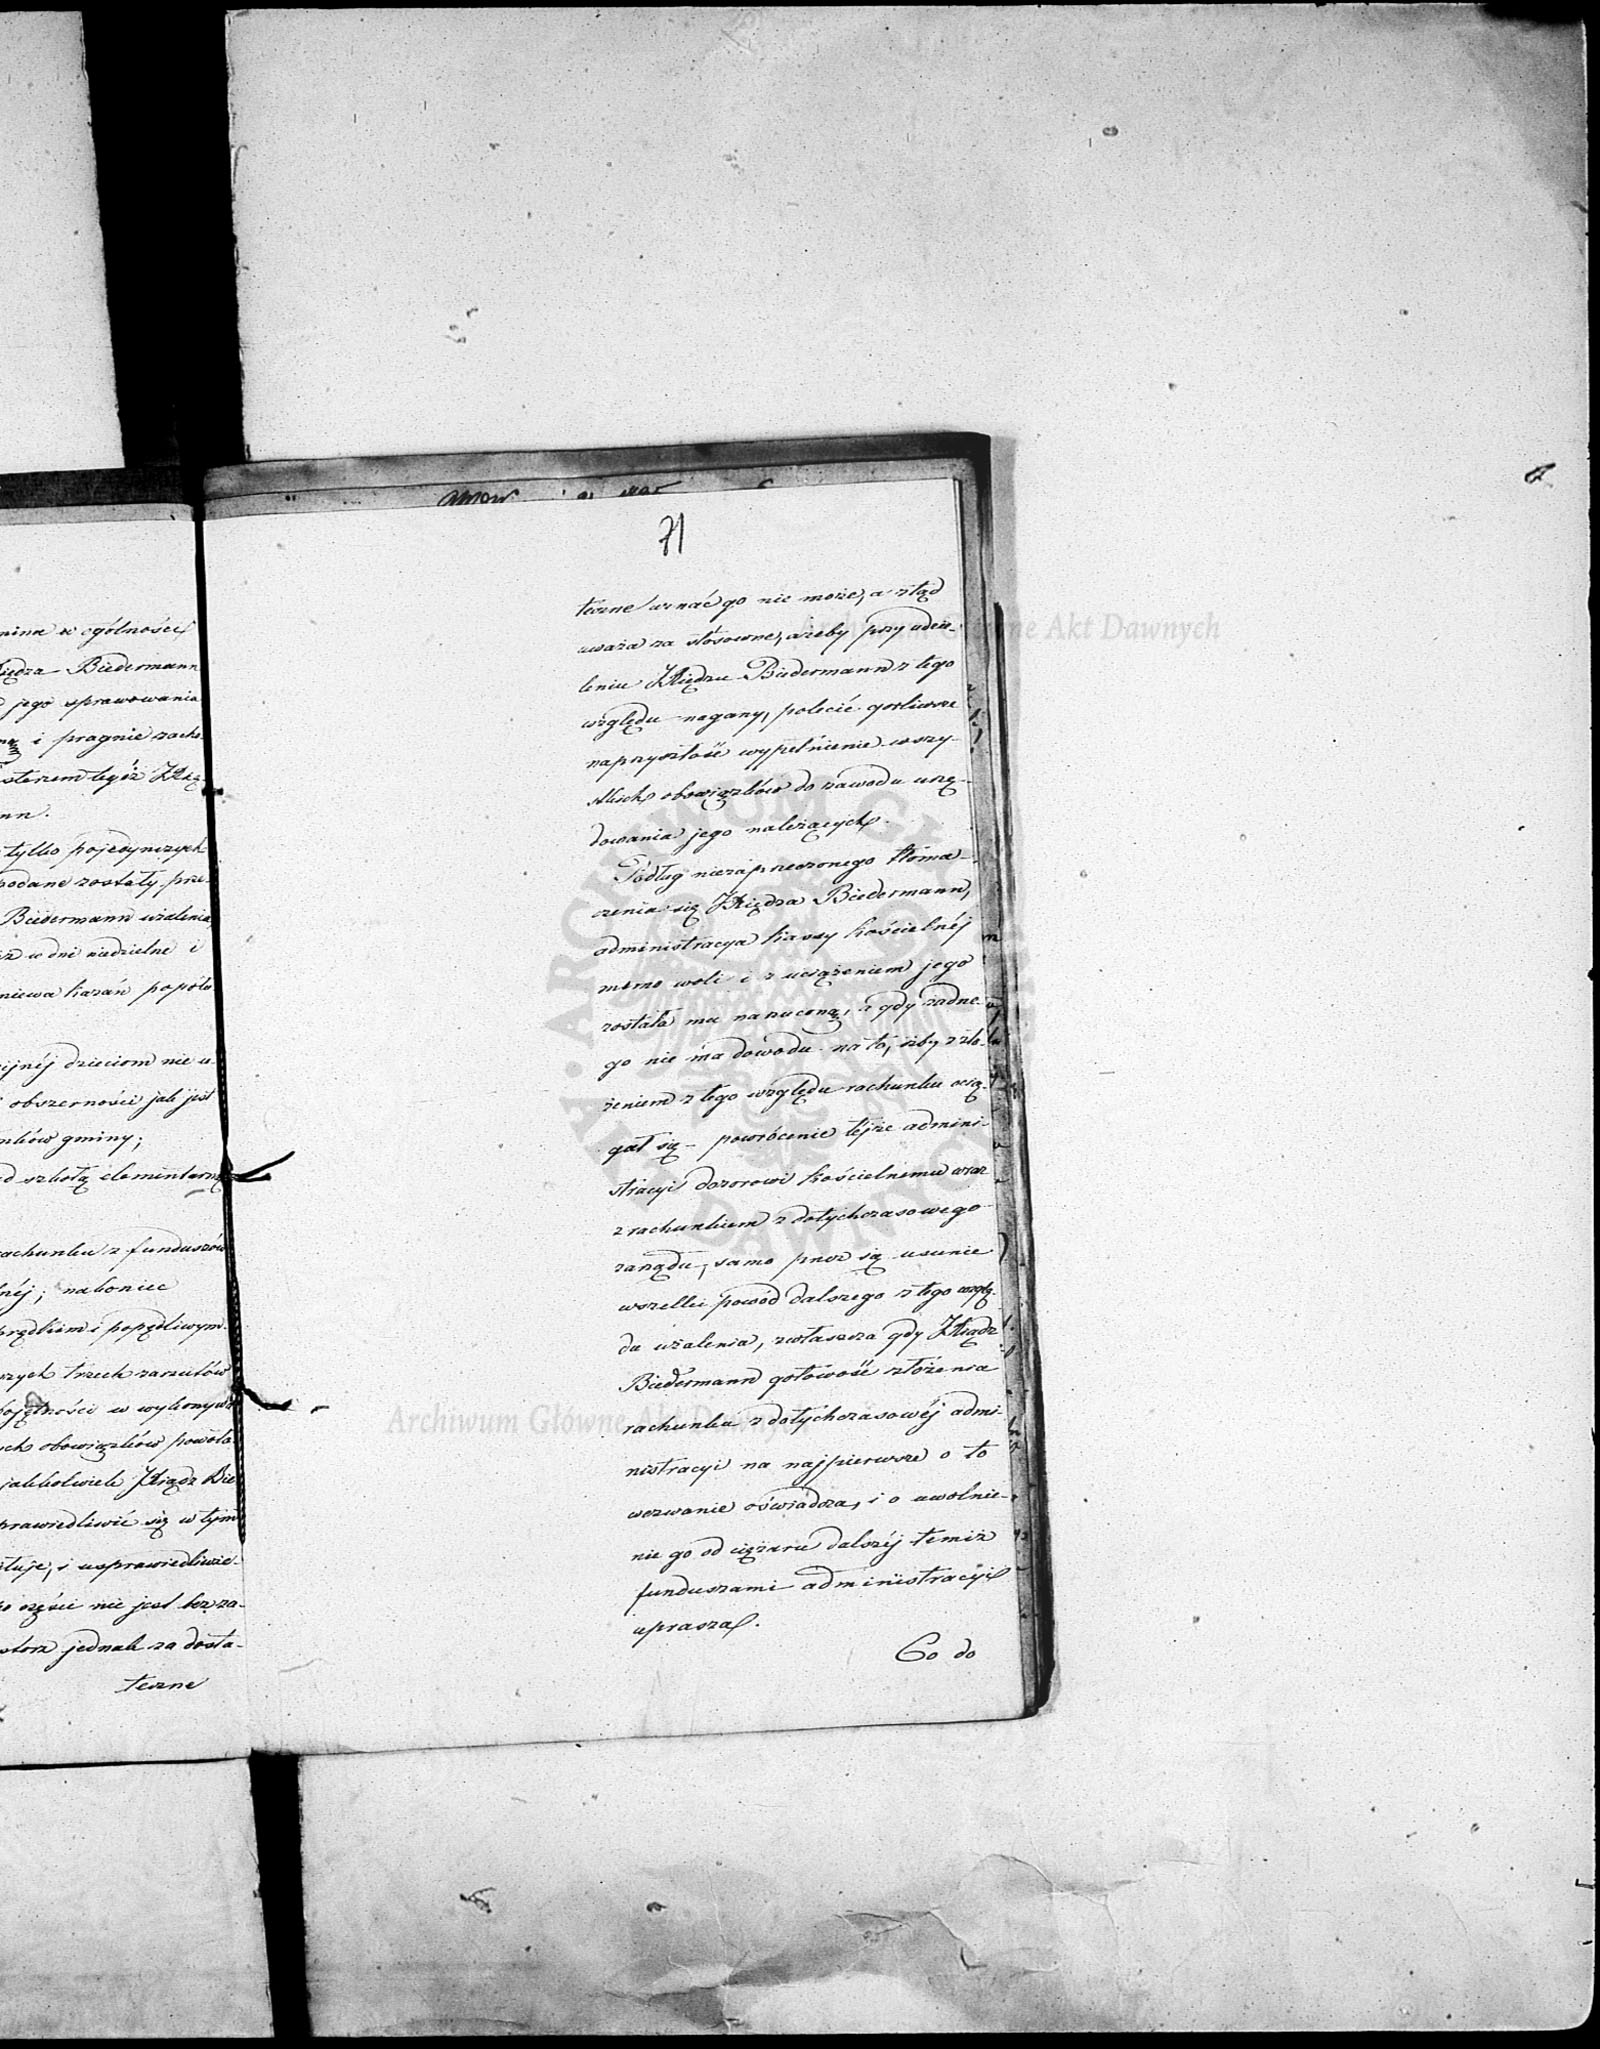 mina w ogólności
Xiędza Biedermann
jego sprawowania
i pragnie zacho-
sterem tegóż Xię
nn.
tylko pojedynczych
podane zostały prze-
Biedermann użalenia,
w dni niedzielne i
niewa kazań popołu
ijnéj dzieciom nie u-
obszerności jak jest
nków gminy;
d szkołą elementarną
rachunku z funduszów
néj; nakoniec
prędkiem i popędliwym.
szych trzech zarzutów
ojętności w wykonywa
ych obowiązków powoła-
jakkolwiek Xiądz Bie
prawiedliwić się w tym
ituje, i usprawiedliwie-
części nie jest bez za-
storz jednak za dosta-
teczne
71
teczne uznać go nie może, a ztąd
uważa za stósowne, ażeby przy udzie-
leniu Xiędzu Biedermann z tego
względu nagany, polecić gorliwsze
naprzyszłość wypełnienie wszy-
stkich obowiązków do zawodu urzę-
dowania jego należących.
Podług niezaprzeczonego tłoma-
czenia się Xiędza Biedermann,
administracya kassy kościelnéj
mimo woli i z uciążeniem jego
została mu narzuconą, a gdy żadne-
go nie ma dowodu na to, iżby z zło-
żeniem z tego względu rachunku ocią-
gał się – powrócenie téjże admini-
stracyi dozorowi kościelnemu wraz
z rachunkiem z dotychczasowego
zarządu, samo przez się usunie
wszelki powód dalszego z tego wzglę-
du użalenia, zwłaszcza gdy Xiądz
Biedermann gotowość złożenia
rachunku z dotychczasowéj admi-
nistracyi na najpierwsze o to
wezwanie oświadcza, i o uwolnie-
nie go od ciężaru dalszéj temiż
funduszami administracyi
uprasza.
Co do
Archiwum Główne Akt Dawnych
Archiwum Główne Akt Dawnych